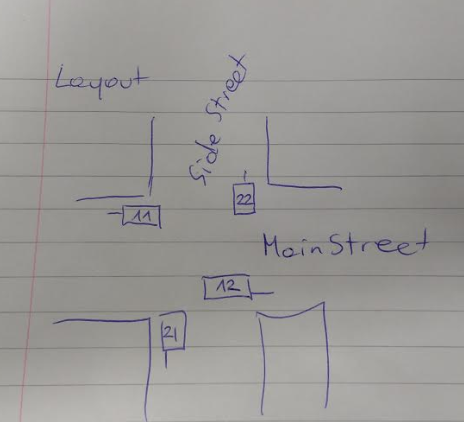 Layout
Side Street
11
22
Main Street
12
21